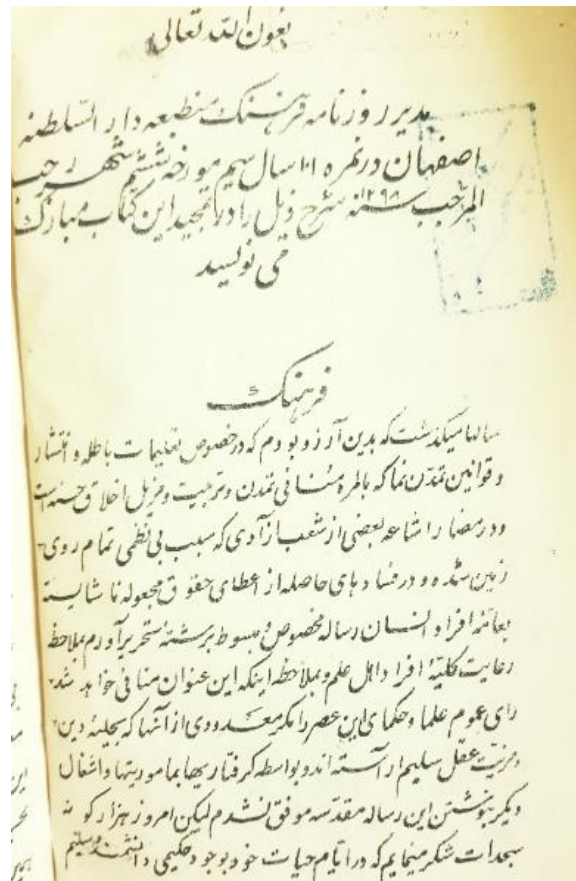 بعون الله تعالی
مدیر روزنامه فرهنگ منطبعه دار السلطنه
اصفهان در نمره ۱۰۱ سال سیم مورخه ششم شهر رجب
المرجب سنه ۱۲۹۸ شرح ذیل را در تمجید این کتاب مبارک
می نویسد
فرهنگ
سالها میگذشت که بدین آرزو بودم که در خصوص تعلیمات باطله و انتشار
و قوانین تمدن نما که بالمره منافی تمدن و تربیت و مزیل اخلاق حسنه است
و در مضار اشاعه بعضی از شعب آزادی که سبب بی نظمی تمام روی
زمین شده و در فسادهای حاصله از اعطای حقوق مجعوله ناشایسته
بعامه افراد انسان رساله مخصوص و مبسوط برشته تحریر آورم بملاحظه
رعایت کلیه افراد اهل علم و بملاحظه اینکه این عنوان منافی خواهد شد
رای عموم علما و حکمای این عصر را مگر معدودی از آنها که بحلیه دین
و مزیت عقل سلیم آراسته اند و بواسطه گرفتاریها بماموریتها و اشغال
دیگر بنوشتن این رساله مقدسه موفق نشدم لیکن امروز هزار گونه
سجدات شکر مینمایم که در ایام حیات خود بوجود حکیمی دانشمند و سلیم